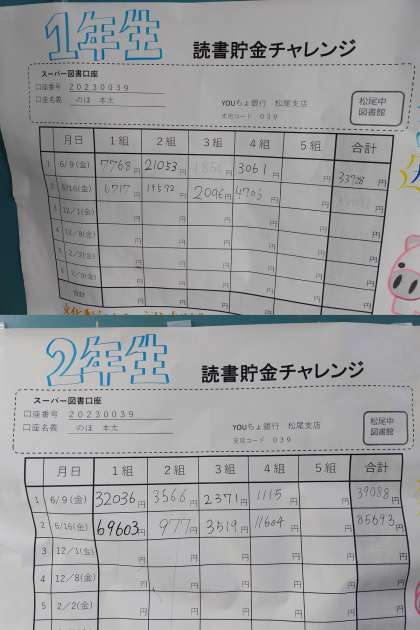 1年生
読書貯金チャレンジ
スーパー図書口座
口座番号 20230039
口座名義 のほ 本太
YOUちょ銀行 松尾支店
支店コード 039
松尾中
図書館
月日 1組 2組 3組 4組 5組 合計
1 6/9(金) 7768円 21053円 円 3061円 円 33728円
2 6/16(金) 6717円 円 2096円 円 円 円
3 12/1(金) 円 円 円 円 円 円
4 12/8(金) 円 円 円 円 円 円
5 2/2(金) 円 円 円 円 円 円
2/9(金) 円 円 円 円 円 円
合計 円 円 円 円 円 円
2年生
読書貯金チャレンジ
スーパー図書口座
口座番号 20230039
口座名義 のほ 本太
YOUちょ銀行 松尾支店
支店コード 039
松尾中
図書館
月日 1組 2組 3組 4組 5組 合計
1 6/9(金) 32036円 3566円 2371円 1115円 円 39088円
2 6/16(金) 69603円 977円 3519円 11604円 円 85693円
3 12/1(金) 円 円 円 円 円 円
4 12/8(金) 円 円 円 円 円 円
5 2/2(金) 円 円 円 円 円 円